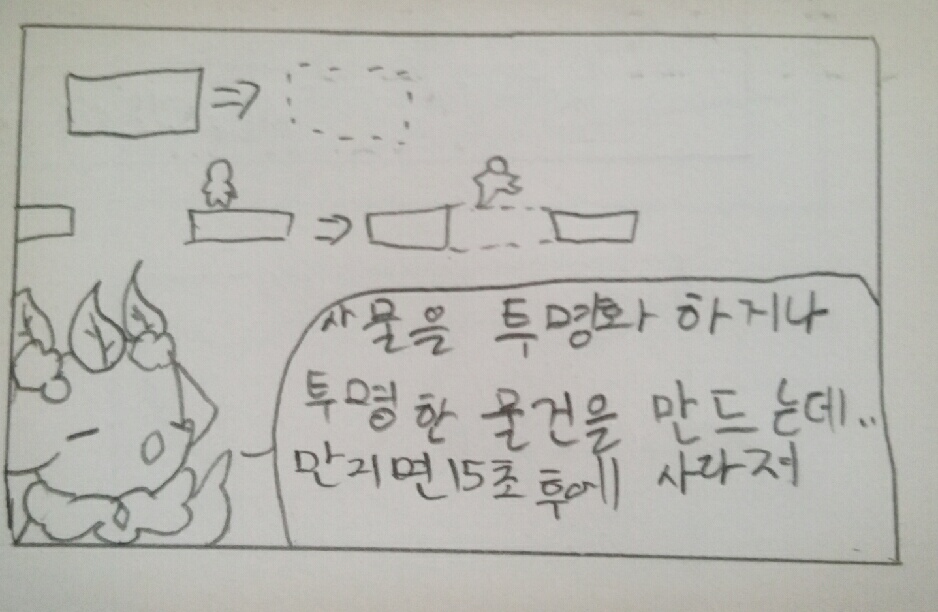 사물을 투명화 하거나
투명한 물건을 만드는데..
만지면 15초 후에 사라져